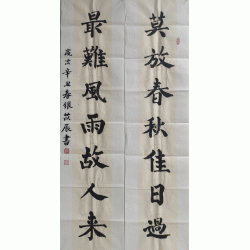 莫放春秋佳日過
最難風雨故人来
歲次辛丑春銀茂辰書